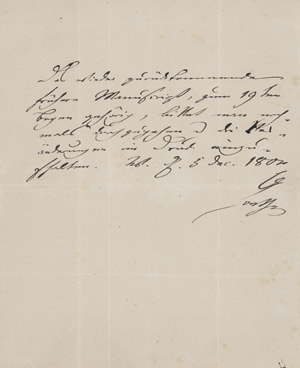 Das wieder zurückkommende
frühere Manuscript, zum 19ten
Bogen gehörig, bittet man noch-
mals durchzugehen u die Ver-
änderungen im Druck einzu-
schalten. W. d. 5 Dec. 180
G